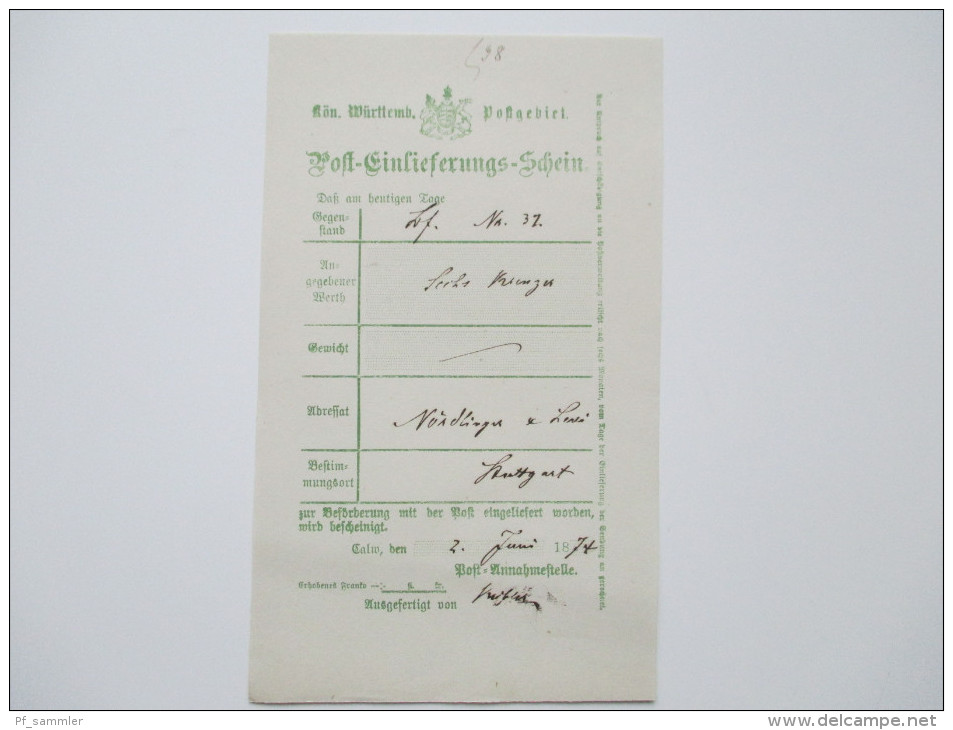 98
Kön. Württemb. Postgebiet.
Post-Einlieferungs-Schein.
Daß am heutigen Tage
Gegen-
stand
Bf. No. 32.
An-
gegebener
Werth
Sechs Kreuzer
Gewicht
Adressat
Nördlinger & Levi
Bestim-
mungsort
Stuttgart
zur Beförderung mit der Post eingeliefert worden,
wird bescheinigt.
Calw, den 2. Juni 1874
Post-Annahmestelle.
Erhobenes Franko fl. kr.
Ausgefertigt von
Pf_sammler
www.delcampe.net